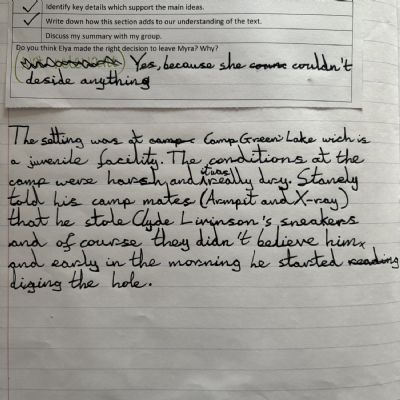 Identify key details which support the main ideas.
Write down how this section adds to our understanding of the text.
Discuss my summary with my group.
Do you think Elya made the right decision to leave Myra? Why?
Yes, because she couldn't
deside anything
The setting was at Camp Green Lake wich is
a juvenile facility. The conditions at the
camp were harsh, and it was really dry. Stanely
told his camp mates (Armpit and X-ray)
that he stole Clyde Livinson's sneakers
and of course they didn't believe him
and early in the morning he started
diging the hole.